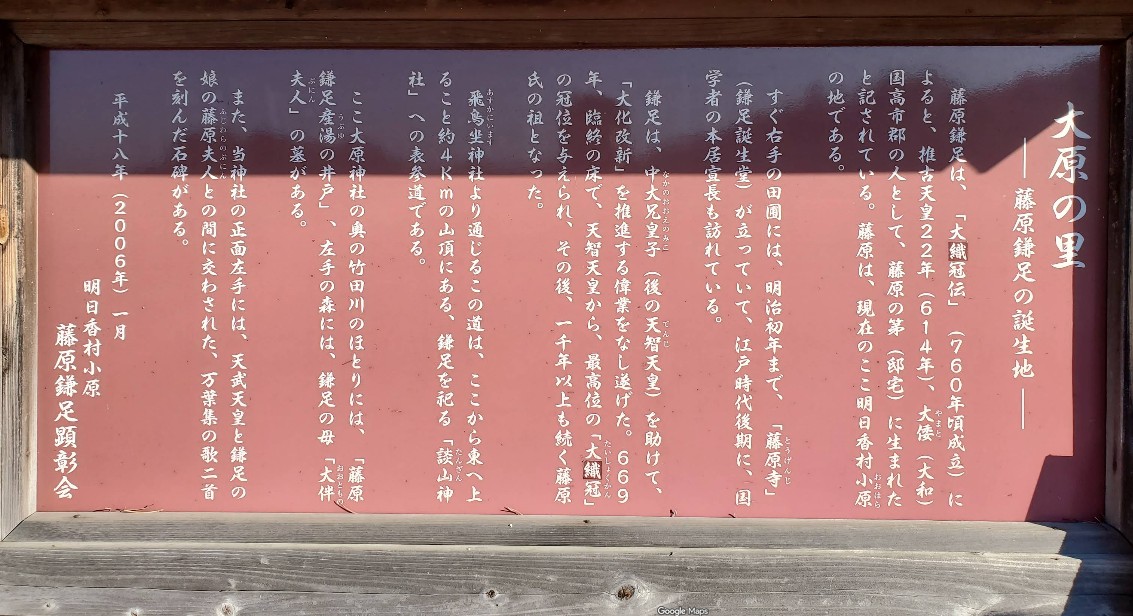 大原の里
― 藤原鎌足の誕生地 ―
藤原鎌足は、「大織冠伝」(760年頃成立)に
よると、推古天皇22年(614年)、大倭(大和)
国高市郡の人として、藤原の第(邸宅)に生まれた
と記されている。藤原は、現在のここ明日香村小原
の地である。
すぐ右手の田圃には、明治初年まで、「藤原寺」
(鎌足誕生堂)が立っていて、江戸時代後期に、国
学者の本居宣長も訪れている。
鎌足は、中大兄皇子(後の天智天皇)を助けて、
「大化改新」を推進する偉業をなし遂げた。669
年、臨終の床で、天智天皇から、最高位の「大織冠」
の冠位を与えられ、その後、一千年以上も続く藤原
氏の祖となった。
飛鳥坐神社より通じるこの道は、ここから東へ上
ること約4Kmの山頂にある、鎌足を祀る「談山神
社」への表参道である。
ここ大原神社の奥の竹田川のほとりには、「藤原
鎌足産湯の井戸」、左手の森には、鎌足の母「大伴
夫人」の墓がある。
また、当神社の正面左手には、天武天皇と鎌足の
娘の藤原夫人との間に交わされた、万葉集の歌二首
を刻んだ石碑がある。
平成十八年(2006年)一月
明日香村小原
藤原鎌足顕彰会
Google Maps